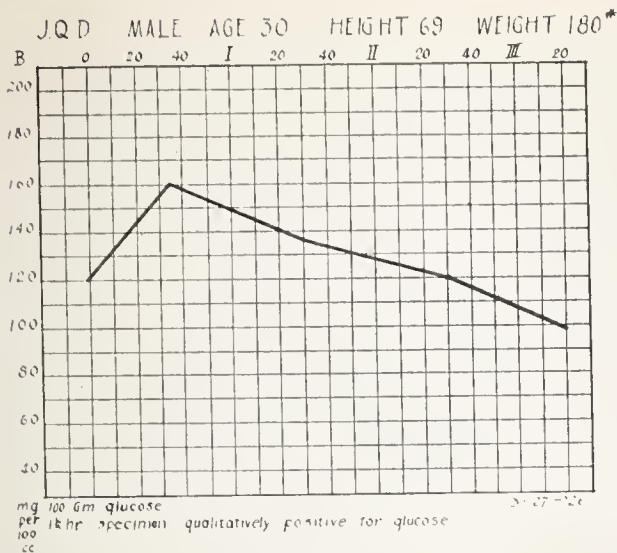 J.Q D MALE AGE 30 HEIGHT 69 WEIGHT 180#
B 0 20 40 I 20 40 II 20 40 III 20
200
180
160
140
120
100
80
60
40
mg 100 Gm glucose
per hr specimen qualitatively positive for glucose
100
cc